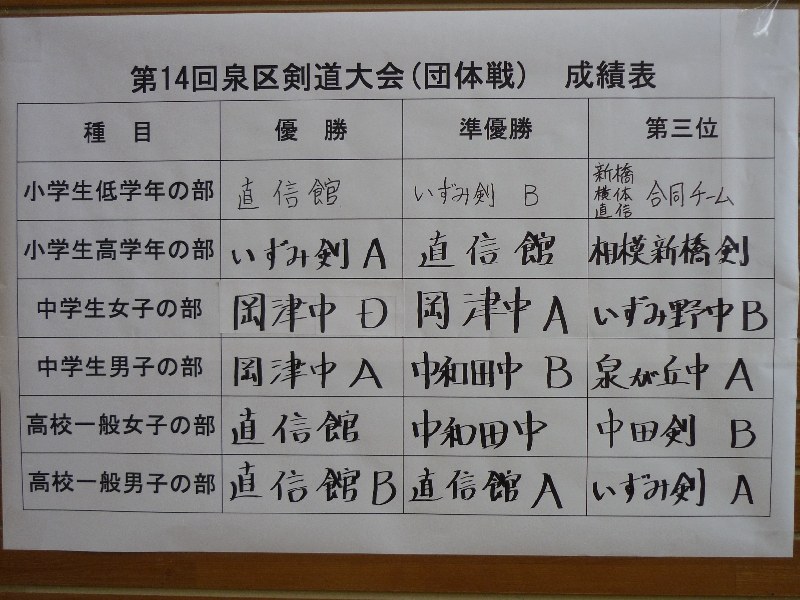 第14回泉区剣道大会(団体戦) 成績表
種目 優勝 準優勝 第三位
小学生低学年の部 直信館 いずみ剣 B 新橋 横体 直信 合同チーム
小学生高学年の部 いずみ剣 A 直信館 相模新橋剣
中学生女子の部 岡津中 D 岡津中 A いずみ野中 B
中学生男子の部 岡津中 A 中和田中 B 泉が丘中 A
高校一般女子の部 直信館 中和田中 中田剣 B
高校一般男子の部 直信館 B 直信館 A いずみ剣 A